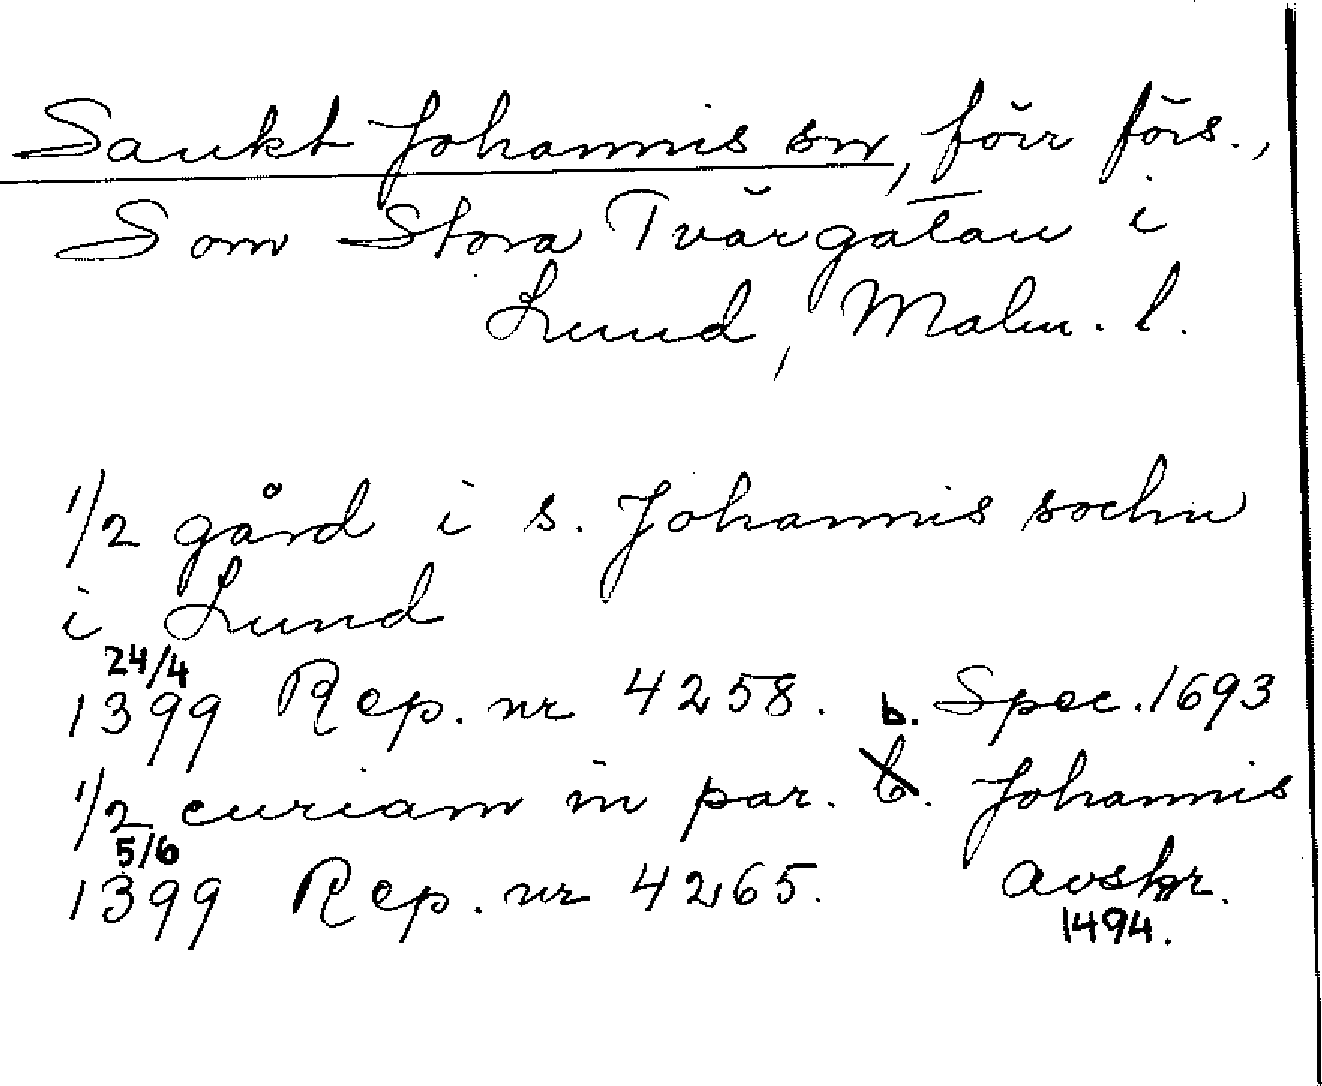 Sankt Johannis sn, förr förs.,
Som Stora Tvärgatan i
Lund, Malm. l.
1/2 gård i s. Johannis sochn
i Lund
24/4
1399 Rep. nr 4258. b. Spec. 1693
1/2 curiam in par. b. Johannis
5/6
1399 Rep. nr 4265. avskr.
1494.